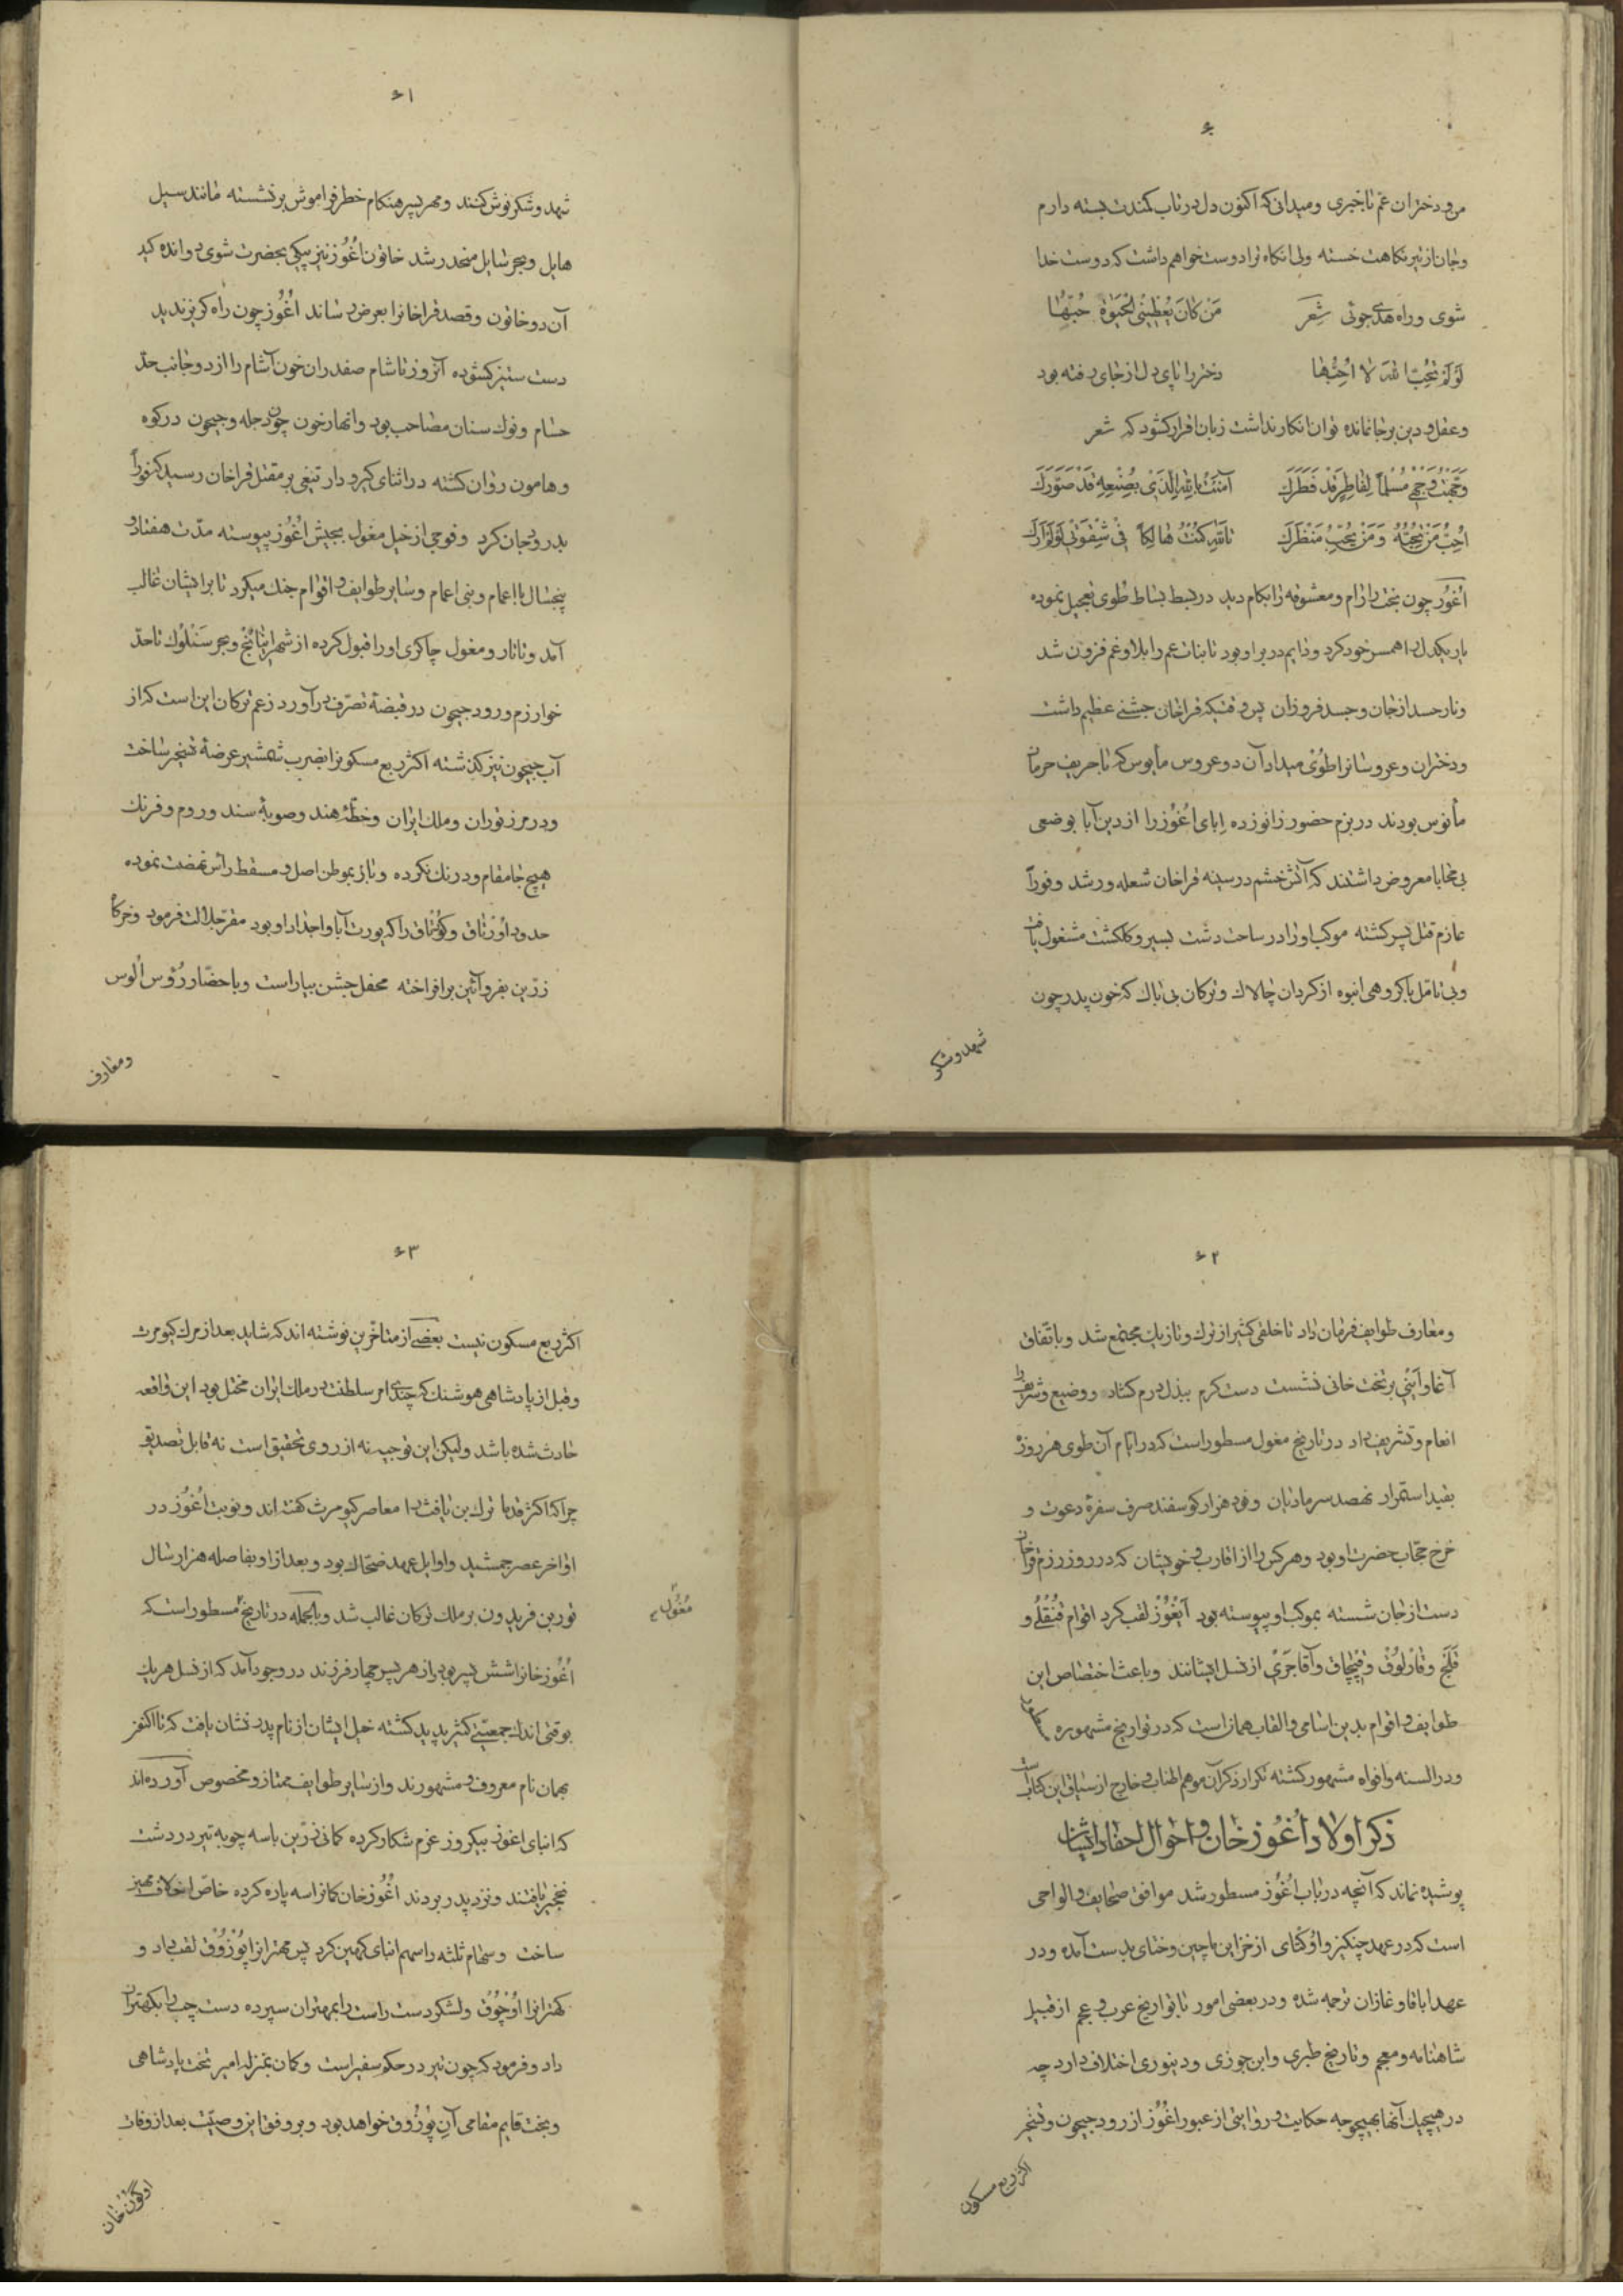 ۶۰
من و دختران عم تاخبری و میدانی که اکنون دل در تاب کمندت بسته دارم
و جان از تیر نکاهت خسته ولی انکاه ترا دوست خواهم داشت که دوست خدا
شوی و راه هدی جوئی شعر مَن کانَ یُعْطِینی الحَیٰوةَ حُبّها
لَو لَمْ تُحِبّ اللهَ لا اُحِبُّها دختر را پای دل از جای رفته بود
و عقل و دین بر جا نمانده توان انکار نداشت زبان اقرار کشود که شعر
وَجَّهْتُ وَجْهِی مُسْلِماً لِفاطِرٍ قَدْ فَطَرَكَ آمَنْتُ باللهِ الَّذی بِصُنْعِهِ قَدْ صَوَّرَكَ
اُحِبُّ مَنْ تُحِبُّهُ وَ مَنْ یُحِبُّ مَنْظَرَكَ تاللهِ کُنْتُ هالِکاً فی شِقْوَتی لَوْ لَمْ اَرَكَ
اُغُوز چون بخت را رام و معشوقه را بکام دید در بسط بساط طوی تعجیل نموده
یار یکدل را همسر خود کرد و دایم در بر او بود تا بنات عم را بلا و غم فزون شد
و نار حسد از جان و جسد فروزان پس وقتیکه قراخان جشنی عظیم داشت
و دختران و عروسانرا طوی میداد آن دو عروس مأیوس که با حریف حرمان
مأنوس بودند در بزم حضور زانو زده اِبای اُغُوز را از دین آبا بوضعی
بی محابا معروض داشتند که آتش خشم در سینه قراخان شعله ور شد و فوراً
عازم قتل پسر کشته موکب او را در ساحت دشت بسیر و کلکشت مشغول یافت
و بی تامل با کروهی انبوه از کردان چالاك و ترکان بی باك که خون پدر چون
شهد و شکر
۶۱
شهد و شکر نوش کنند و مهر پسر هنکام خطر فراموش بر نشسته مانند سیل
هایل و بحر سایل منحدر شد خاتون اُغُوز نیز پیکی بحضرت شوی دوانده کید
آن دو خاتون و قصد قراخانرا بعرض رساند اُغُوز چون راه کریز ندید
دست ستیز کشوده آنروز تا شام صفدران خون آشام را از دو جانب حدّ
حسام و نوك سنان مصاحب بود و انهار خون چون دجله و جیحون در کوه
و هامون روان کشته در اثنای کیر و دار تیغی بر مقتل قراخان رسید که فوراً
بدرود جان کرد و فوجی از خیل مغول بجیش اُغُوز پیوسته مدّت هفتاد و
پنجسال با اعمام و بنی اعمام و سایر طوایف و اقوام جنك میکرد تا بر ایشان غالب
آمد و تاتار و مغول چاکری او را قبول کرده از شهر اینانج و بحر سَنْلُوك تا حدّ
خوارزم و رود جیحون در قبضهٔ تصرّف در آورد زعم ترکان این است که از
آب جیحون نیز کذشته اکثر ربع مسکونرا بضرب شمشیر عرضهٔ تسخیر ساخت
و در مرز توران و ملك ایران و خطّهٔ هند و صوبهٔ سند و روم و فرنك
هیچ جا مقام و درنك نکرده و باز بموطن اصل و مسقط راس نهضت نموده
حدود اُوزتاق و کُوْتاق را که یورت آبا و اجداد او بود مقرّ جلالت فرمود و خرکاه
زرّین بفر و آئین بر افراخته محفل جشن بیاراست و باحضار رُؤس اُلوس
و معارف
۶۲
و معارف طوایف فرمان داد تا خلقی کثیر از ترك و تازیك مجتمع شد و باتّفاق
آغا و آینی بر تخت خانی نشست دست کرم ببذل درم کشاد و وضیع و شریف را
انعام و تشریف داد در تاریخ مغول مسطور است که در ایام آن طوی هر روز
بقید استمرار نهصد سر مادیان و نود هزار کوسفند صرف سفرهٔ دعوت و
خرج حجّاب حضرت او بود و هر کس را از اقارب و خویشان که در روز رزم قراخان
دست از جان شسته بموکب او پیوسته بود آیغُوْر لقب کرد اقوام قَنْقُلِی و
قَلَج و قارلُوْق و قبْچاق و آقاجَرِی از نسل ایشانند و باعث اختصاص این
طوایف و اقوام بدین اسامی و القاب همان است که در تواریخ مشهوره
و در السنه و افواه مشهور کشته تکرار ذکر آن موهم اطناب و خارج از سیاق این کتابست
ذکر اولاد اُغُوز خان و احوال احفاد ایشان
پوشیده نماند که آنچه در باب اُغُوز مسطور شد موافق صحایف و الواحی
است که در عهد چنکیز و اُوکْتای از خزاین ماچین و ختای بدست آمده و در
عهد اباقا و غازان ترجمه شده و در بعضی امور با تواریخ عرب و عجم از قبیل
شاهنامه و معجم و تاریخ طبری و ابن جوزی و دینوری اختلاف دارد چه
در هیچیك آنها بهیچوجه حکایت و روایتی از عبور اُغُوز از رود جیحون و تسخیر
اکثر ربع مسکون
۶۳
اکثر ربع مسکون نیست بعضی از متاخّرین نوشته اند که شاید بعد از مرك کیومرث
و قبل از پادشاهی هوشنك که چندی امر سلطنت در ملك ایران مختل بود این واقعه
حادث شده باشد ولیکن این توجیه نه از روی تحقیق است نه قابل تصدیق
چرا که اکثر قدما ترك بن یافث را معاصر کیومرث کفته اند و نوبت اُغُوز در
اواخر عصر جمشید و اوایل عهد ضحّاك بود و بعد از او بفاصله هزار سال
تور بن فریدون بر ملك ترکان غالب شد و بالجمله در تاریخ مسطور است که
مُغُول
اُغُوز خانرا شش پسر بود از هر پسر چهار فرزند در وجود آمد که از نسل هر یك
بوقتی اندك جمعیّتی کثیر پدید کشته خیل ایشان از نام پدر نشان یافت که تا اکنون
بهمان نام معروف و مشهورند و از سایر طوایف ممتاز و مخصوص آورده اند
که ابنای اغوز بیکروز عزم شکار کرده کمانی زرّین با سه چوبه تیر در دشت
نخجیر یافتند و نزد پدر بردند اُغُوز خان کمانرا سه پاره کرده خاصّ اخلاف مهین
ساخت و سهام ثلثه را سهم ابنای کهین کرد پس مهترانرا بُوْزُوْق لقب داد و
کهترانرا اُوْچُوْق و لشکر دست راست را بمهتران سپرده دست چپ را بکهتران
داد و فرمود که چون تیر در حکم سفیر است و کمان بمنزله امیر تخت پادشاهی
و بخت قایم مقامی آنِ بُوْزُوق خواهد بود و بر وفق این وصیّت بعد از وفات